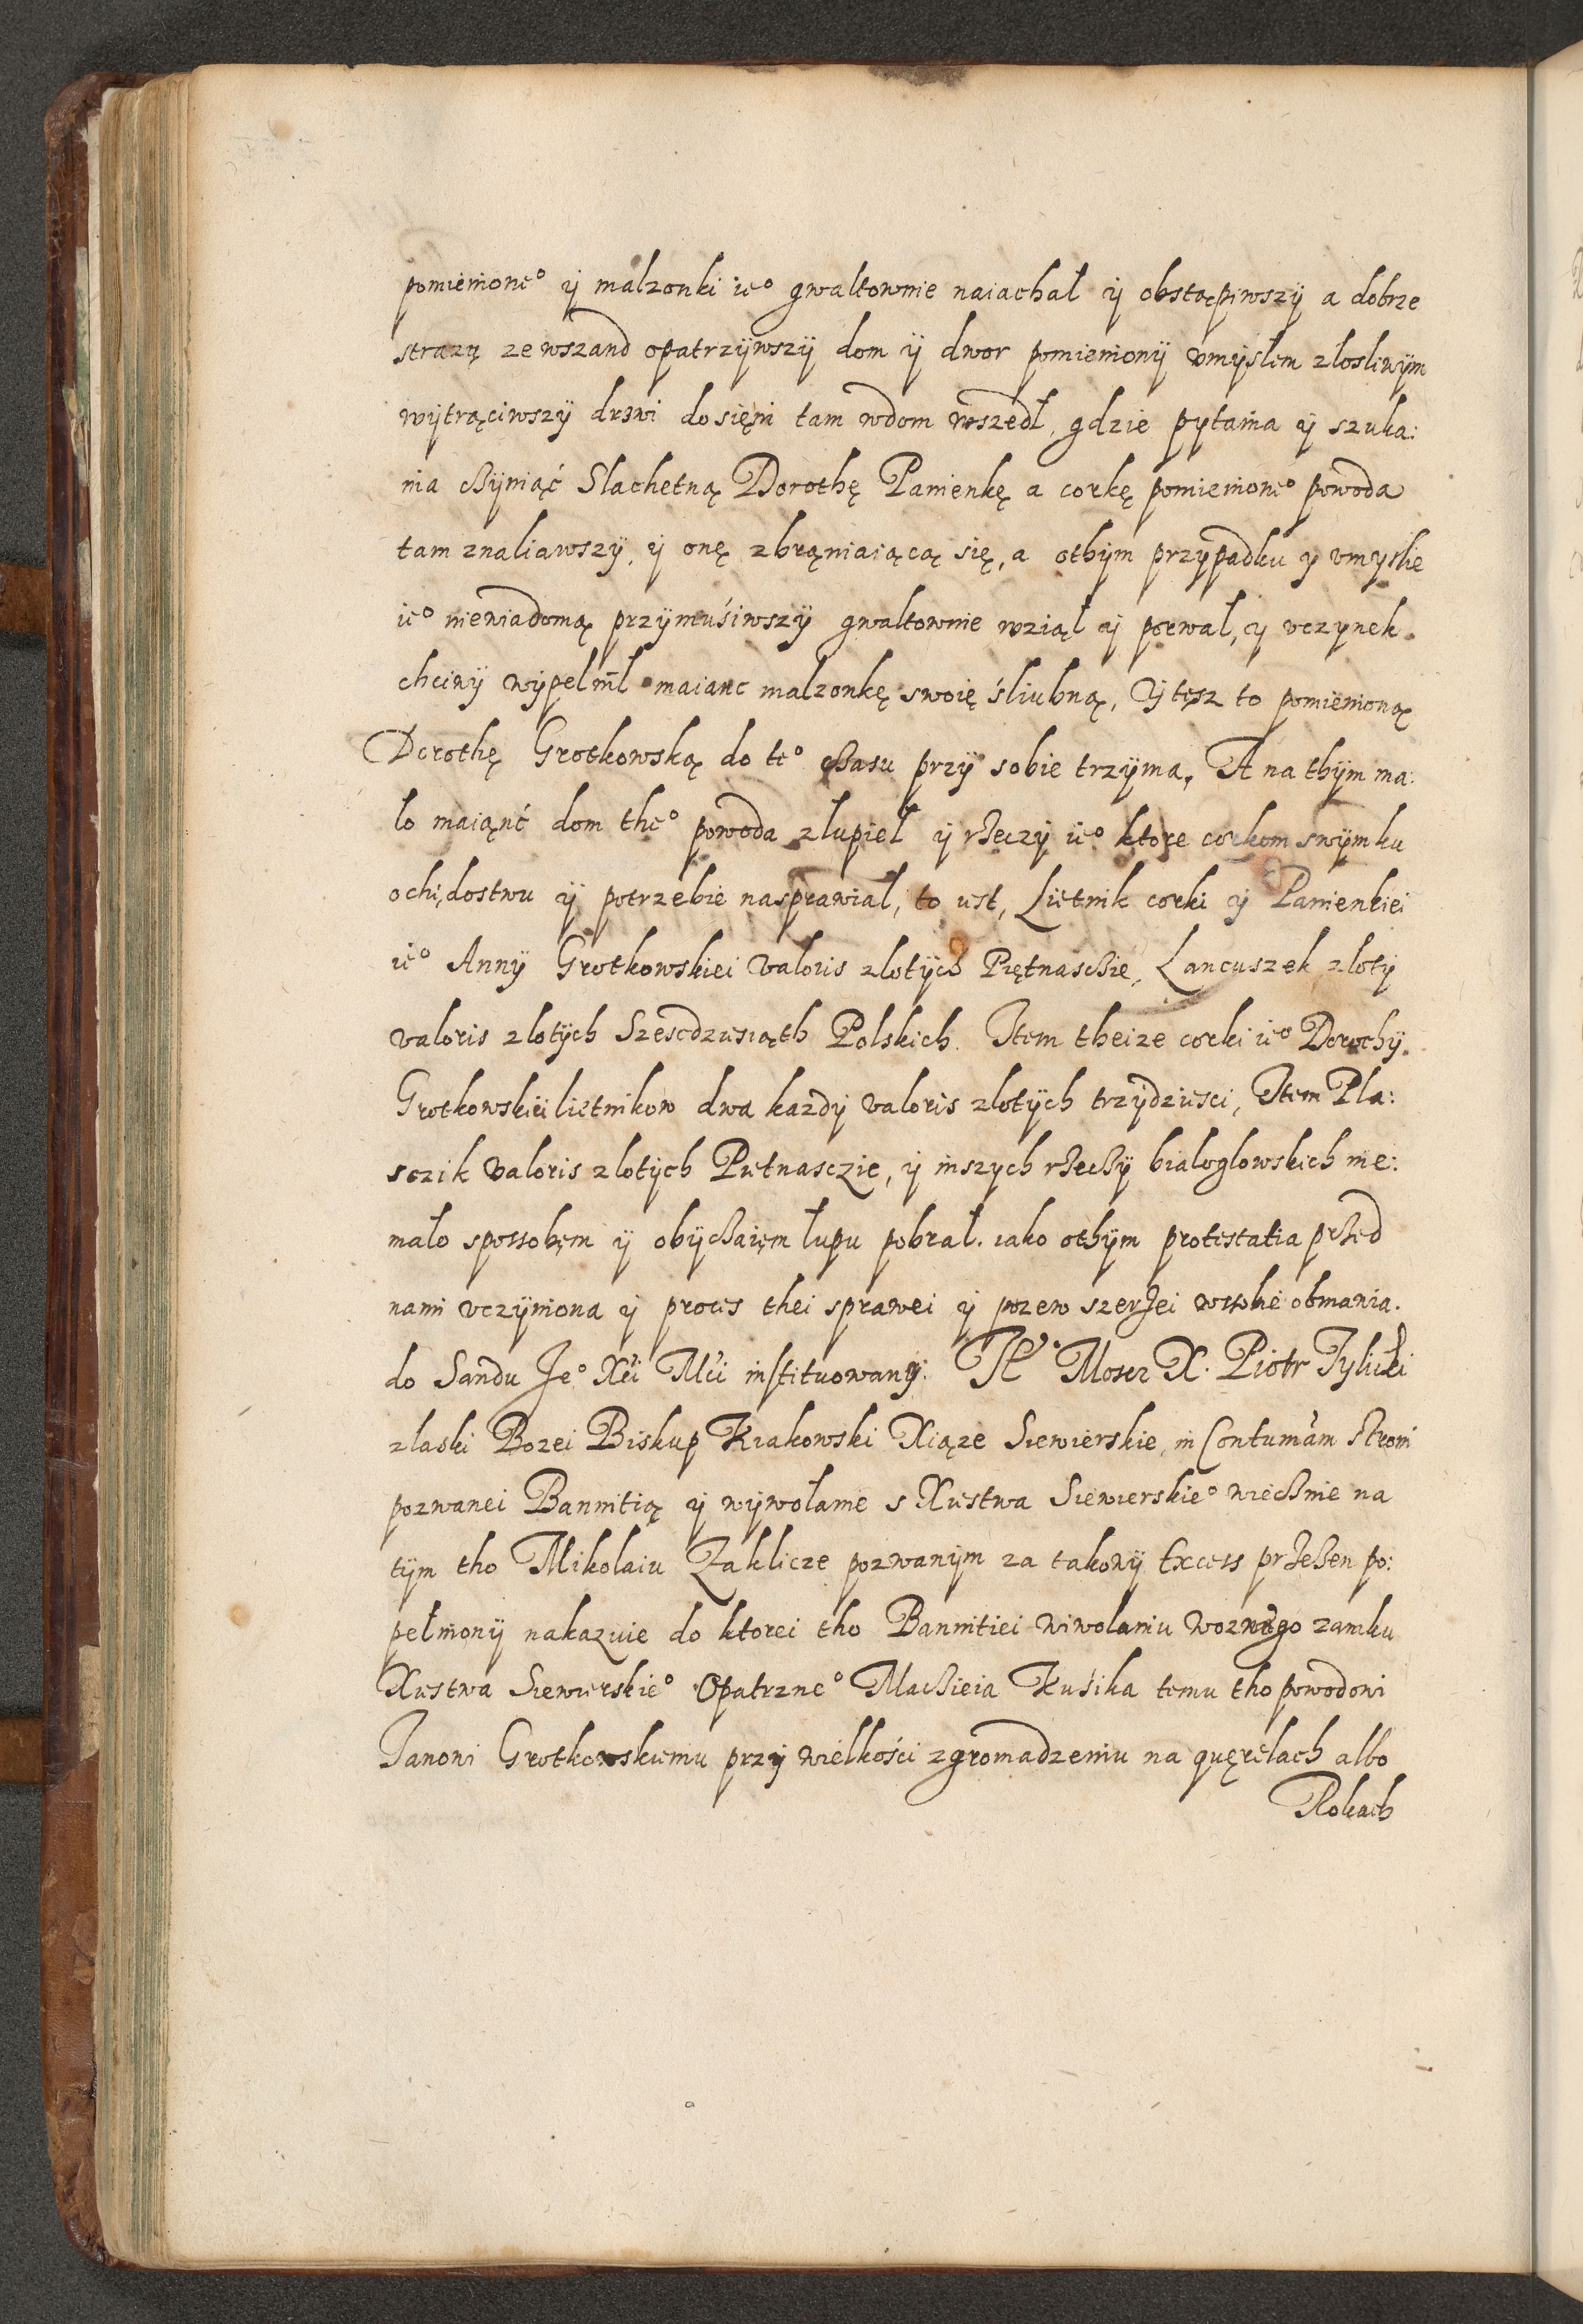 pomienione° ÿ malzonki ie° gwaltownie naiachał ÿ obstąpiwszÿ a dobrze
strazą zewszand opatrzÿwszÿ dom ÿ dwor pomienionÿ vmÿslem zlosliwÿm
wÿtrąciwszÿ drzwi do sięni tam wdom wszedł, gdzie pytania ÿ szuka:
nia czÿniąć Slachetną Dorothę Panienkę a corkę pomienione° powoda
tam znaliawszÿ, ÿ onę zbrąniaiącą się, a othÿm przÿpadku y vmyslie
ie° niewiadomą przÿmuśiwszÿ gwaltownie wziął ÿ porwał, ÿ vczynek
chciwÿ wÿpelnił maianc malzonkę swoię śliubną, ÿ tęsz to pomienioną
Dorothę Grotkowską do te° czasu przÿ sobie trzÿma, A na thÿm ma:
lo maiąnć dom the° powoda zlupieł ÿ rzeczÿ ie° ktore corkom swÿm ku
ochędostwu ÿ potrzebie nasprawiał, to iest, Lietnik corki ÿ Panienkiei
ie° Annÿ Grotkowskiei valoris zlotÿch Piętnasczie, Lancuszek zlotÿ
valoris zlotÿch Szescdziesiąth Polskich. Item theize corki ie° Dorothÿ
Grotkowskiei lietnikow dwa kazdÿ valoris zlotÿch trzÿdziesci, Item Pla:
sczik valoris zlotÿch Pietnasczie, ÿ inszych rzeczÿ bialoglowskich nie:
mało sposobęm ÿ obÿczaięm łupu pobrał. iako othÿm protestatia przed
nami vczÿniona ÿ proces thei sprawei ÿ pozew szerzei wsobie obmawia.
do Sandu Je° Xći Mći instituowanÿ. Moscz X. Piotr Tylicki
zlaski Bozei Biskup Krakowski Xiąze Siewierskie, in Contumam stroni
pozwanei Bannitią ÿ wÿwołanie s Xiestwa Siewierskie° wiecznie na
tÿm tho Mikolaiu Zaklicze pozwanÿm za takowÿ Excess przezen po:
pełnionÿ nakazuie do ktorei tho Bannitiei wiwolaniu woznego zamku
Xiestwa Siewierskie° Opatrzne° Maczieia Kusika temu tho powodowi
Janowi Grotkowskiemu przÿ wielkości zgromadzeniu na quęrelach albo
Rokach